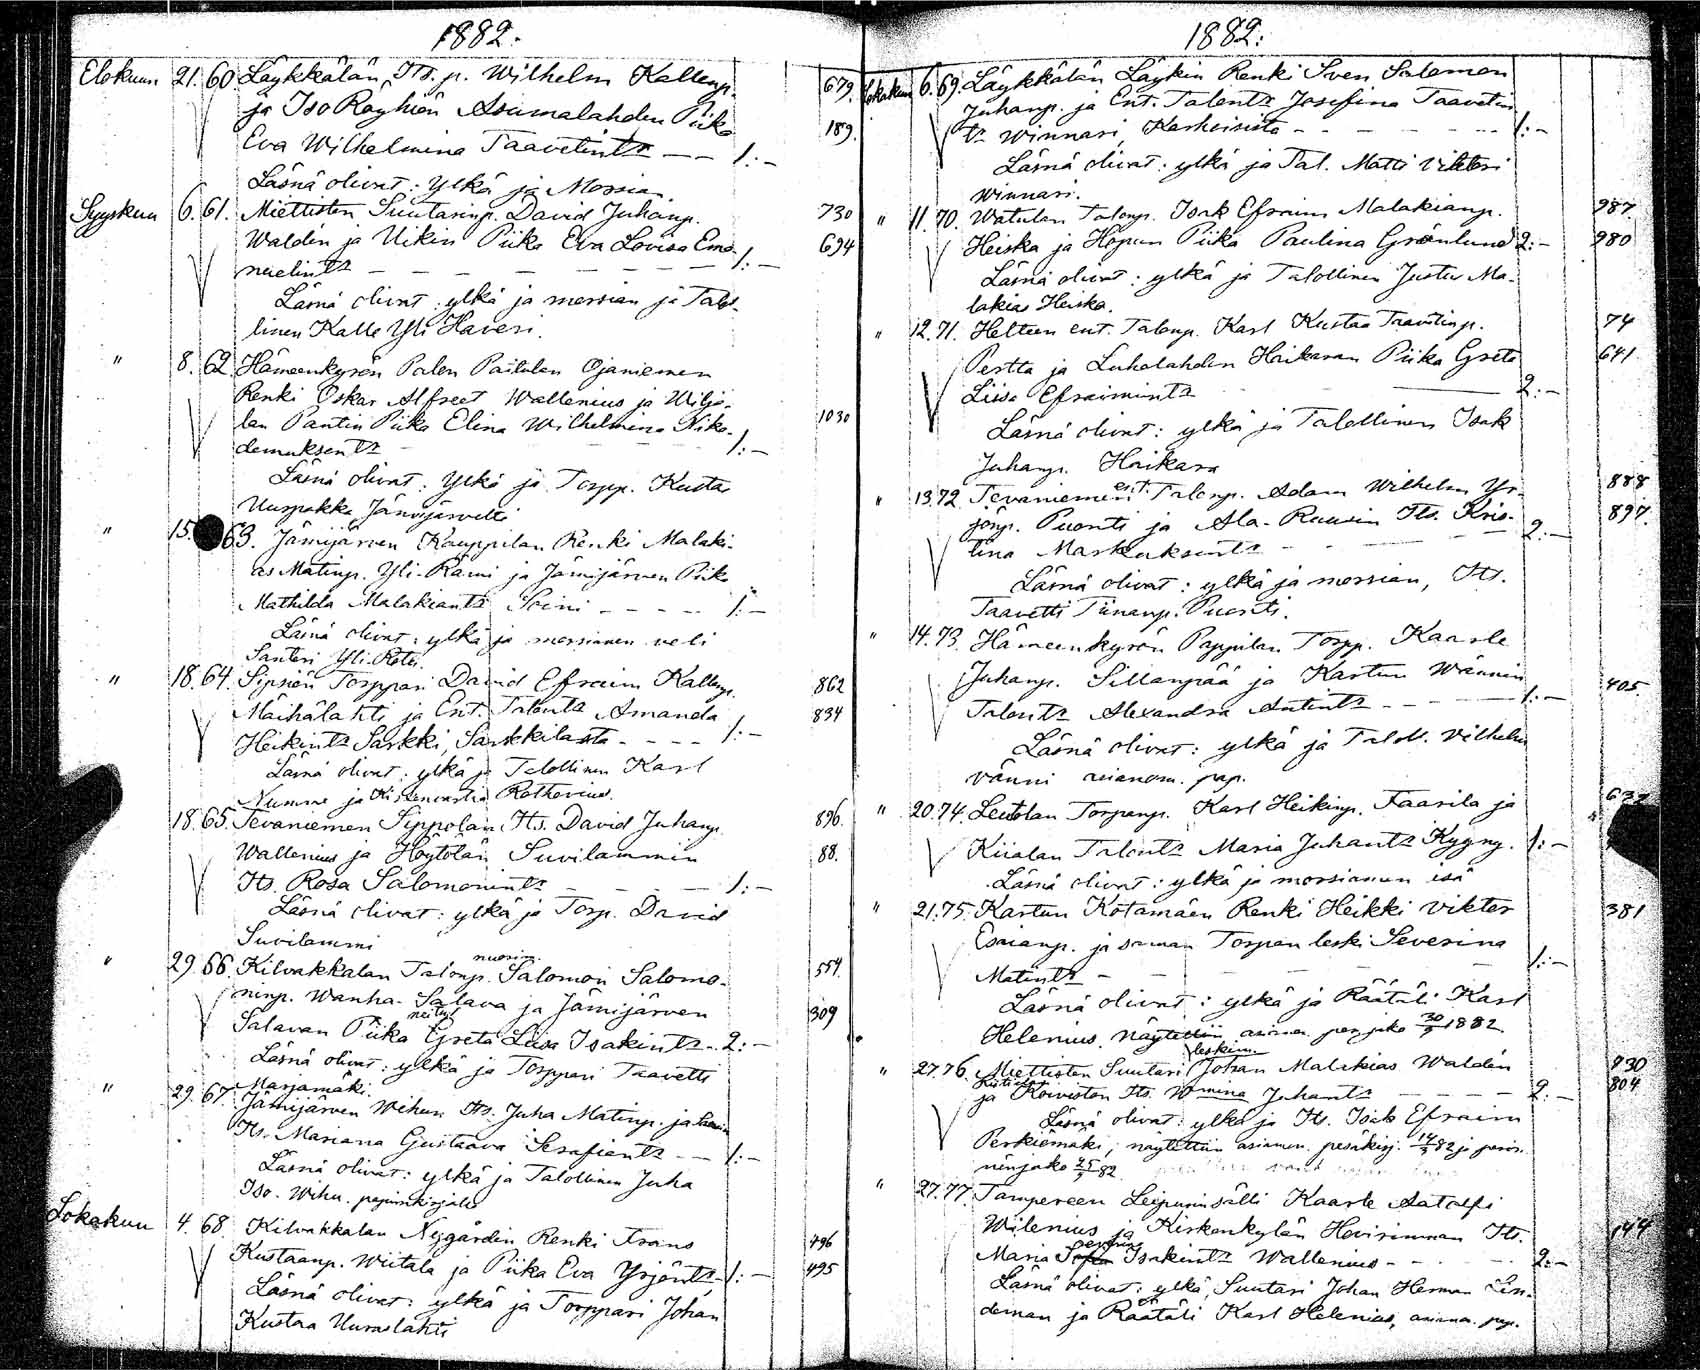 1882.
Elokuun 21. 60. Läykkälän Its. p. Wilhelm Kallenp. 679.
ja Iso Röyhiön Asumalahden Piika 189.
Eva Wilhelmina Taavetintr — — 1:—
Läsnä olivat: ylkä ja Morsian
Syyskuu 6. 61. Miettisten Suutarinp. David Juhanp. 730
Waldén ja Uikin Piika Eva Lovisa Ema- 694
nuelintr — — — — — — 1:—
Läsnä olivat: ylkä ja morsian ja Talol-
linen Kalle Yli Haveri.
" 8. 62. Hämeenkyrön Palen Paitulan Ojaniemen
Renki Oskar Alfreet Wallenius ja Wiljä-
lan Pantin Piika Elina Wilhelmina Niko- 1030
demuksentr — — 1:—
Läsnä olivat: ylkä ja Torpp. Kusta
Uuspakka Jämijärveltä
" 15. 63. Jämijärven Kauppilan Renki Malaki-
as Matinp. Yli-Rämi ja Jämijärven Piika
Mathilda Malakiantr Soini - - - - - 1:—
Läsnä olivat: ylkä ja morsiamen veli
Santeri Yli-Koti.
" 18. 64. Sipsiön Torppari David Efraim Kallenp. 862
Maihälahti ja Ent. Talontr Amanda 834
Heikintr Sarkki, Sarkkilasta - - - - 1:—
Läsnä olivat: ylkä ja Talollinen Karl
Numme ja Kistenvartia Rothovius.
18. 65. Tevaniemen Sippolan Its. David Juhanp. 896.
Wallenius ja Höytölän Suvilammin 88.
Its. Rosa Salomonintr — — — — 1:—
Läsnä olivat: ylkä ja Torp. David
Suvilammi
" 29. 66. Kilvakkalan Talonp. nuorim. Salomon Salomo- 554.
ninp. Wanha-Salava ja Jämijärven 309
Salavan Piika neitsyt Greta Liisa Isakintr - 2:—
Läsnä olivat: ylkä ja Torppari Taavetti
Marjamäki.
" 29. 67. Jämijärven Wihun Its. Juha Matinp. ja
Its. Mariana Gustaava Serafientr — — 1:—
Läsnä olivat: ylkä ja Talollinen Juha
Iso-Wihu.
Lokakuu 4. 68. Kilvakkalan Nygårdin Renki Frans 496
Kustaanp. Wiitala ja Piika Eva Yrjöntr - 1:— 495
Läsnä olivat: ylkä ja Torppari Johan
Kustaa Uuraslahti
1882.
Lokakuu 6. 69. Läykkälän Läykin Renki Sven Salomon
Juhanp. ja Ent. Talontr Josefina Taavetin
tr Winnari, Karhoisista - - - - - - 1:—
Läsnä olivat: ylkä ja Tal. Matti Viktori
Winnari.
" 11. 70. Watulan Talonp. Isak Efraim Malakianp. 987.
Heiska ja Hopun Piika Paulina Grönlund 2:— 980
Läsnä olivat: ylkä ja Talollinen Justus Ma-
lakias Heiska.
" 12. 71. Heltun ent. Talonp. Karl Kustaa Taavetinp. 74
Pertta ja Luhalahden Haikaran Piika Greta 641
Liisa Efraimintr — 2:—
Läsnä olivat: ylkä ja Talollinen Isak
Juhanp. Haikara
" 13. 72. Tevaniemen ent. Talonp. Adam Wilhelm Yr- 888
jönp. Puonti ja Ala-Rausin Its. Kris- 897.
tina Markuksentr - — — 2:—
Läsnä olivat: ylkä ja morsian, Its.
Taavetti Tiinanp. Puonti.
" 14. 73. Hämeenkyrön Pappilan Torpp. Kaarle
Juhanp. Sillanpää ja Kartun Wännin 405.
Talontr Alexandra Antintr - - - — 1:—
Läsnä olivat: ylkä ja Taloll. Vilhelm
Vänni asianom. pap.
" 20. 74. Leutolan Torpanp. Karl Heikinp. Faarila ja 637
Kiialan Talontr Maria Juhantr Kyyny. 1:—
Läsnä olivat: ylkä ja morsiamen isä
" 21. 75. Kartun Kotamäen Renki Heikki Viktor 381
Esaianp. ja saman Torpan leski Severina
Matintr — — — — 1:—
Läsnä olivat: ylkä ja Räätäli Karl
Helenius. Näytettiin asianom. perinjako 30/9 1882
" 27. 76. Miettisten Suutari leskim. Johan Malakias Waldén 730
ja Koiviston Its. Wennina Juhantr — — — 2:— 804
Läsnä olivat: ylkä ja Its. Isak Efraim
Perkiömäki; näytettiin asianom. pesäkirj. 82 ja perin-
nönjako 82
" 27. 77. Tampereen Leipurinsälli Kaarle Aatolfi
Wilenius ja Kirkonkylän Hovirinnan Its. 144
Maria Severina Isakintr Wallenius - — — — 2:—
Läsnä olivat: ylkä, Suutari Johan Herman Lin-
deman ja Räätäli Karl Helenius, asianom. pap.